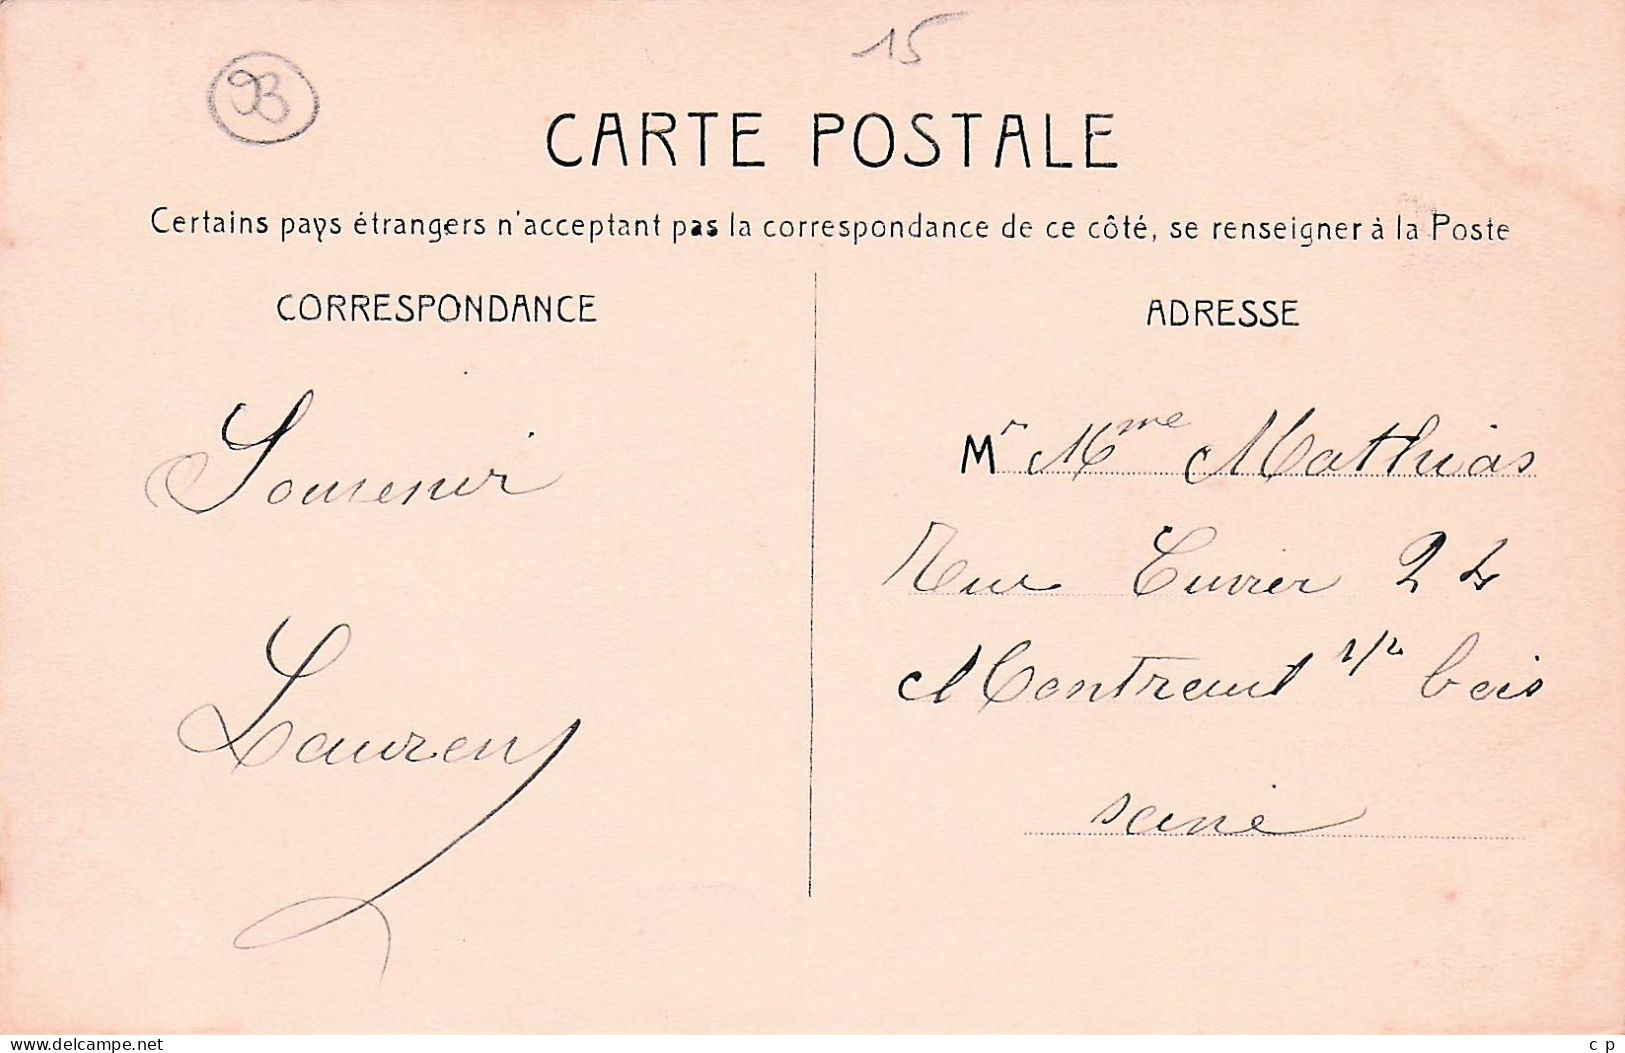 15
CARTE POSTALE
Certains pays étrangers n'acceptant pas la correspondance de ce côté, se renseigner à la Poste
CORRESPONDANCE
Souvenir
Laurent
ADRESSE
Mr Mme Mathias
Rue Cuvier 22
Montreuil s/s bois
seine
www.delcampe.net
cp